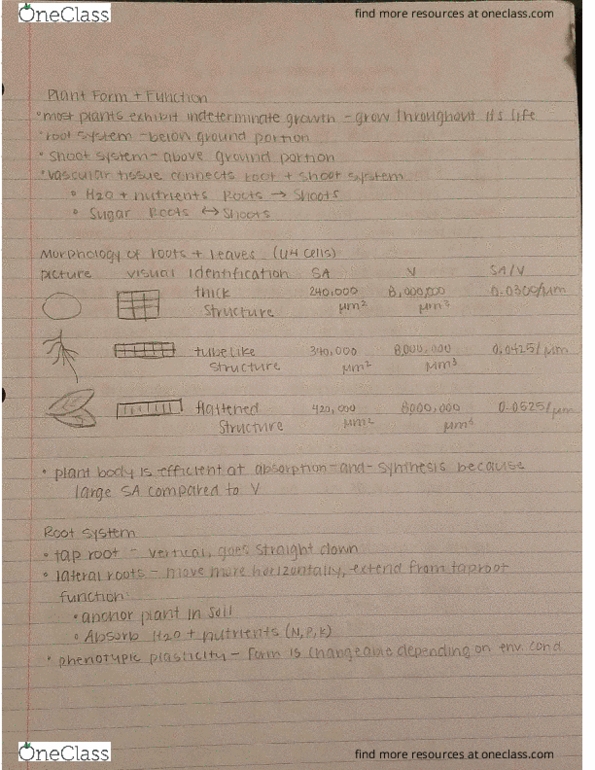 OneClass
find more resources at oneclass.com
Plant Form + Function
• most plants exhibit indeterminate growth - grow throughout its life
• root system - below ground portion
• shoot system - above ground portion
• vascular tissue connects root + shoot system
• H2O + nutrients Roots → Shoots
• Sugar Roots ↔ Shoots
Morphology of roots + leaves (U4 cells)
picture visual Identification SA V SA/V
thick 240,000 8,000,000 0.0300/μm
structure μm² μm³
tubelike 340,000 8,000,000 0.0425/μm
structure μm² μm³
flattened 420,000 8,000,000 0.0525/μm
structure μm² μm³
• plant body is efficient at absorption-and-synthesis because
large SA compared to V
Root System
• tap root - vertical, goes straight down
• lateral roots - move more horizontally, extend from taproot
function:
• anchor plant in soil
• Absorb H2O + nutrients (N, P, K)
• phenotypic plasticity - form is changeable depending on env. cond
OneClass
find more resources at oneclass.com